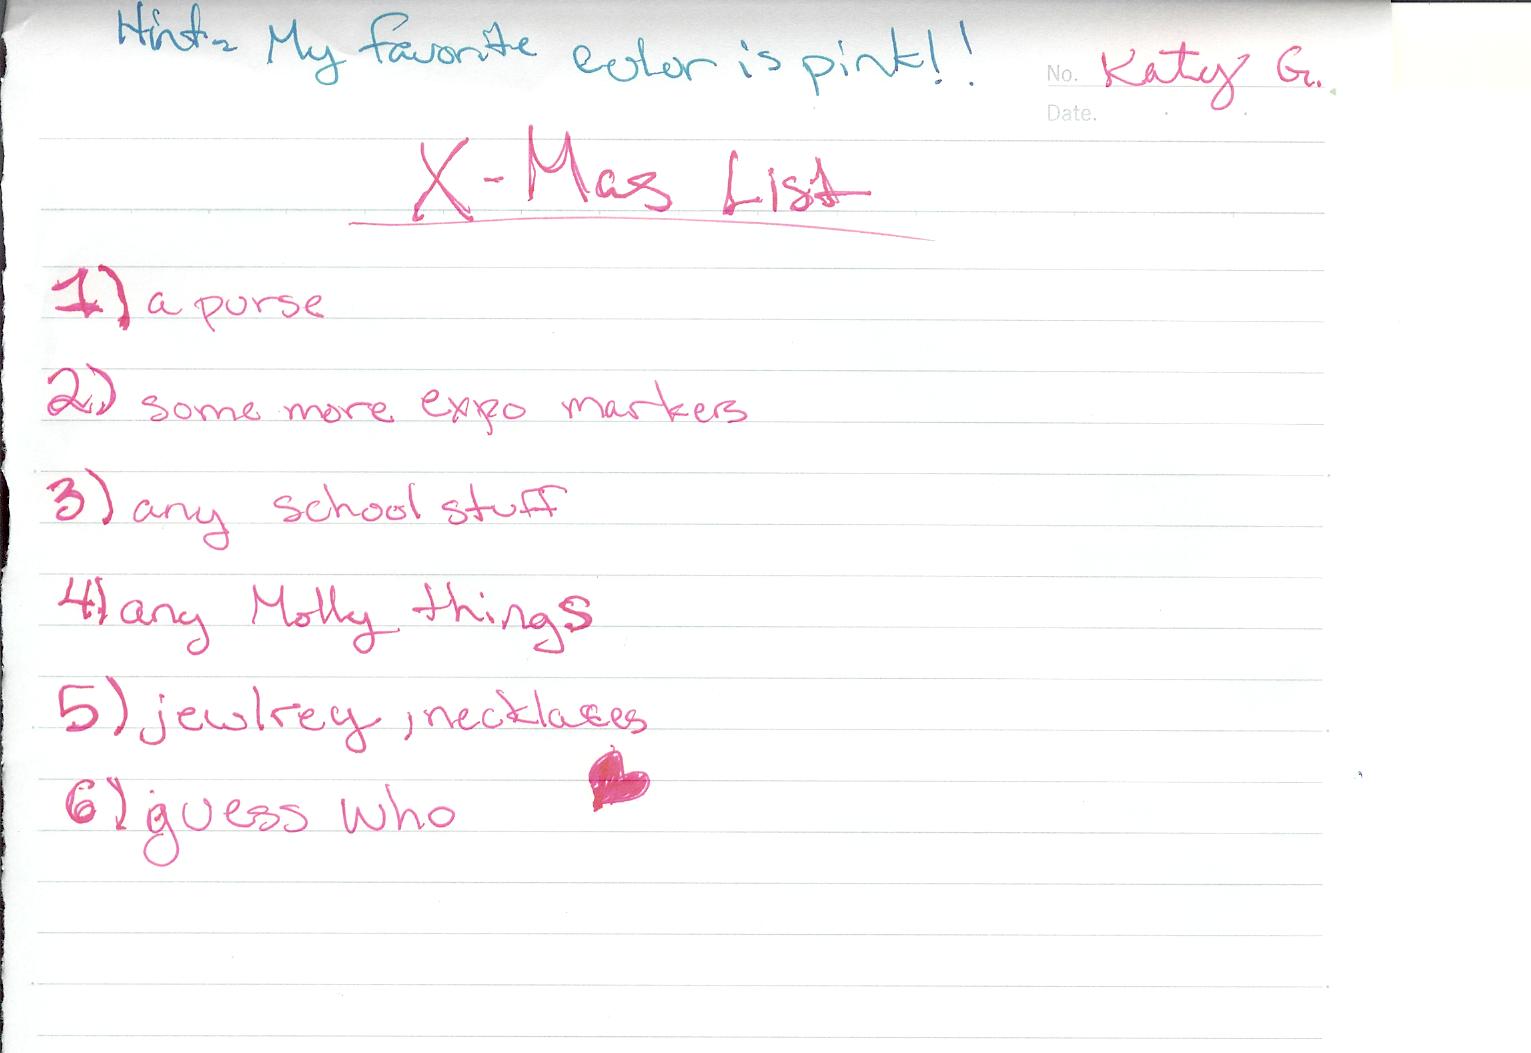 Hint- My favorite color is pink!!
No. Katy G.
Date.
X-Mas List
1) a purse
2) some more expo markers
3) any school stuff
4) any Molly things
5) jewlrey, necklaces
6) guess who